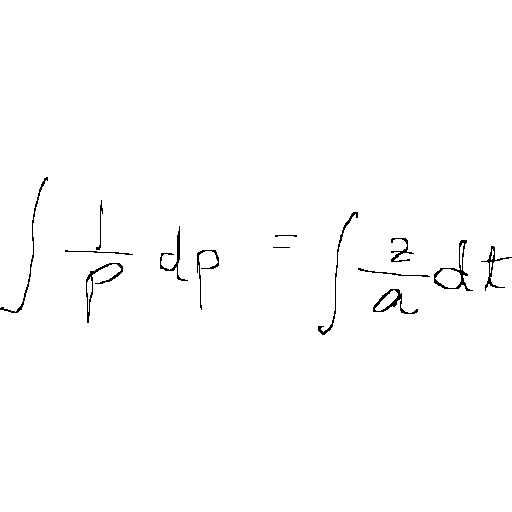 ∫ 1/p dp = ∫ z/a dt